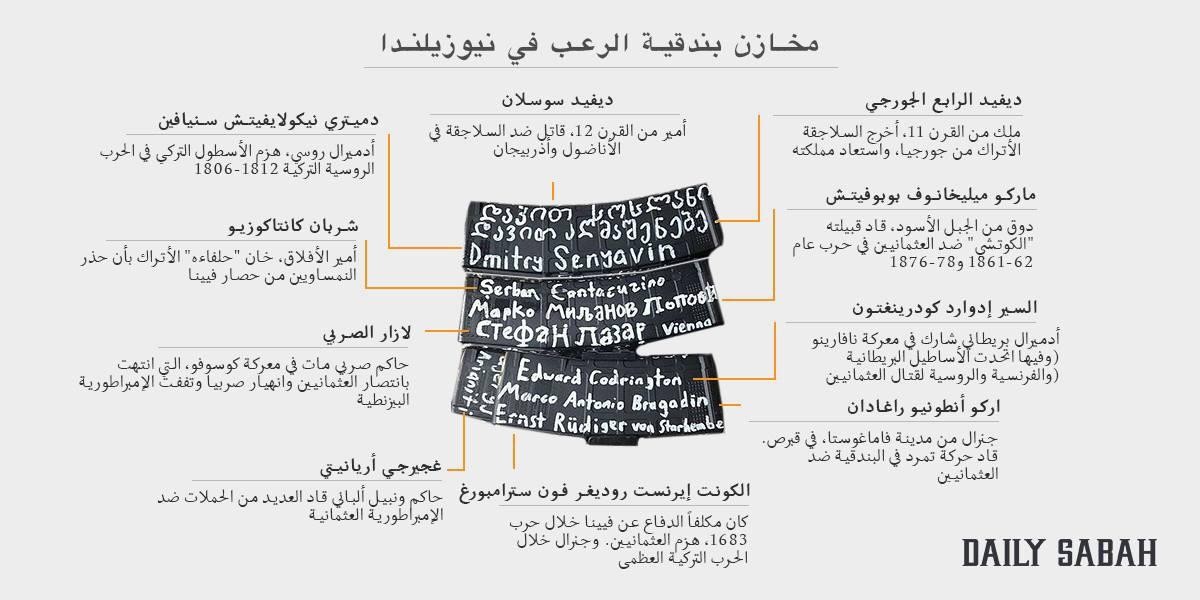 مخازن بندقية الرعب في نيوزيلندا
ديفيد الرابع الجورجي
ملك من القرن 11، أخرج السلاجقة
الأتراك من جورجيا، واستعاد مملكته
ديفيد سوسلان
أمير من القرن 12، قاتل ضد السلاجقة في
الأناضول وأذربيجان
دميتري نيكولايفيتش سنيافين
أدميرال روسي، هزم الأسطول التركي في الحرب
الروسية التركية 1812-1806
ماركو ميليخانوف بوبوفيتش
دوق من الجبل الأسود، قاد قبيلته
"الكوتشي" ضد العثمانيين في حرب عام
1861-62 و78-1876
شربان كانتاكوزيو
أمير الأفلاق، خان "حلفاءه" الأتراك بأن حذر
النمساويين من حصار فيينا
السير إدوارد كودرينغتون
أدميرال بريطاني شارك في معركة نافارينو
(وفيها اتحدت الأساطيل البريطانية
والفرنسية والروسية لقتال العثمانيين)
لازار الصربي
حاكم صربي مات في معركة كوسوفو، التي انتهت
بانتصار العثمانيين وانهيار صربيا وتفتت الإمبراطورية
البيزنطية
اركو أنطونيو راغادان
جنرال من مدينة فاماغوستا، في قبرص.
قاد حركة تمرد في البندقية ضد
العثمانيين
غجيرجي أريانيتي
حاكم ونبيل ألباني قاد العديد من الحملات ضد
الإمبراطورية العثمانية
الكونت إيرنست روديغر فون سترامبورغ
كان مكلفاً الدفاع عن فيينا خلال حرب
1683، هزم العثمانيين. وجنرال خلال
الحرب التركية العظمى
დავით სოსლანი
დავით აღმაშენებე
Dmitry Senyavin
Șerban Cantacuzino
Марко Миљанов Попови
Стефан Лазар Vienna
Edward Codrington
Marco Antonio Bragadin
Ernst Rüdiger von Starhembe
Arianiti
DAILY SABAH